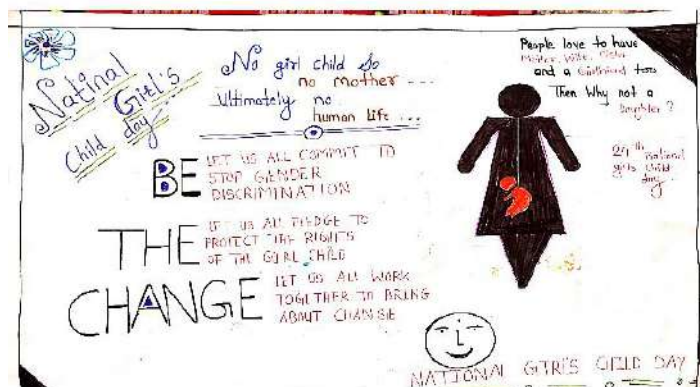 Natinal
Girl's
Child day
No girl child so
no mother ....
Ultimately no
human life ...
BE
LET US ALL COMMIT TO
STOP GENDER
DISCRIMINATION
THE
LET US ALL PLEDGE TO
PROTECT THE RIGHTS
OF THE GIRL CHILD
CHANGE
LET US ALL WORK
TOGETHER TO BRING
ABOUT CHANGE
People love to have
Mother, Wife, Sister
and a Girlfriend too
Then Why not a
Daughter?
24th National
girls child
day
NATIONAL GIRLS CHILD DAY